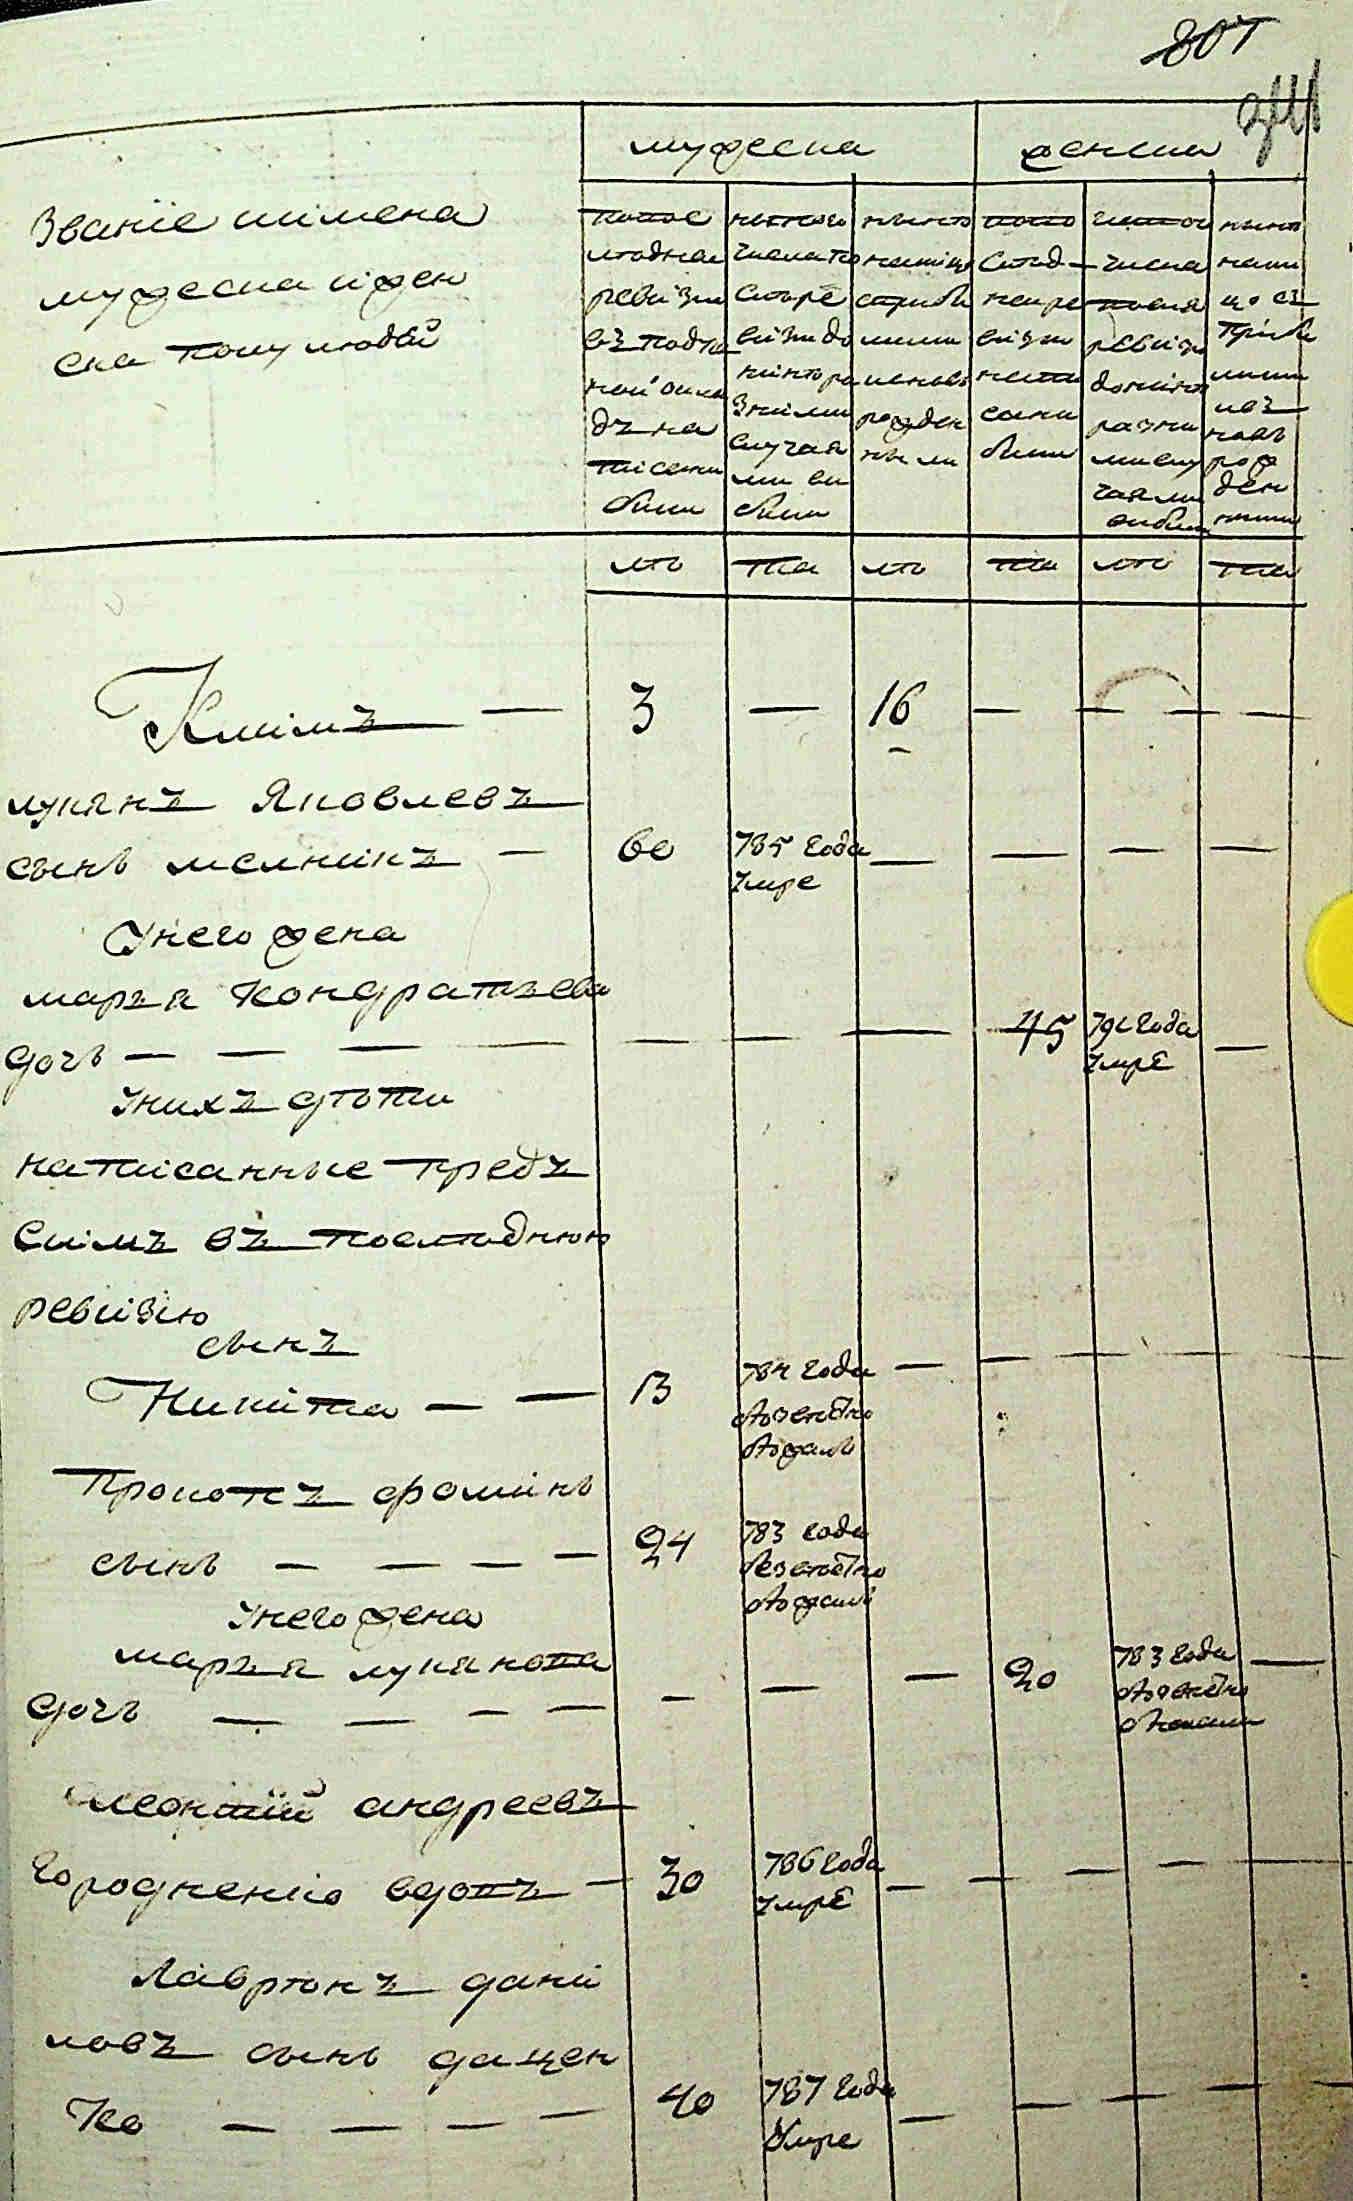 807
341
мужеска женска
Званïе иимена
мужеска ижен
ска полу людей
попос
лѣдней
ревизіи
въ подуш
ной окла
дъ на
писаны
были
исътого
числа по
слѣре
визіи до
нинѣ ра
зними
случая
ми вы
были
нынѣ
налицо
сприбы
лими
иновь
рожден
ными
попо
слѣд
ней ре
визіи
напи
саны
были
изтого
числа
послѣ
ревизи
донинѣ
разни
ми слу
чаями
выбыли
нынѣ
нали
цо съ
Приби
лими
ивъ
новь
рож
ден
ними
лѣ та лѣ та лѣ та
Климъ — 3 — 16 — — — —
лукянъ Яковлевъ
сынъ мелникъ — 60 785 года — — — —
умре
Унего жена
маръя Кондратъева
дочь — — — — — — — 45 791 года —
умре
унихъ дѣти
написанные предъ
симъ въ последнюю
ревизію
сынъ
Никита — — 13 784 года — —
безвѣстно
бѣжалъ
Прокопъ фоминъ
сынъ — — — — 24 783 года
безвѣстно
бѣжалъ
унего жена
маръя лукянова
дочь — — — — — — — 20 783 года —
безвѣстно
бѣжали
леонтий андреевъ
Городненко вдовъ — 30 786 года — — — — —
умре
Лаврѣнъ дани
ловъ сынъ дащен
ко — — — — 40 787 года — — — — —
Умре